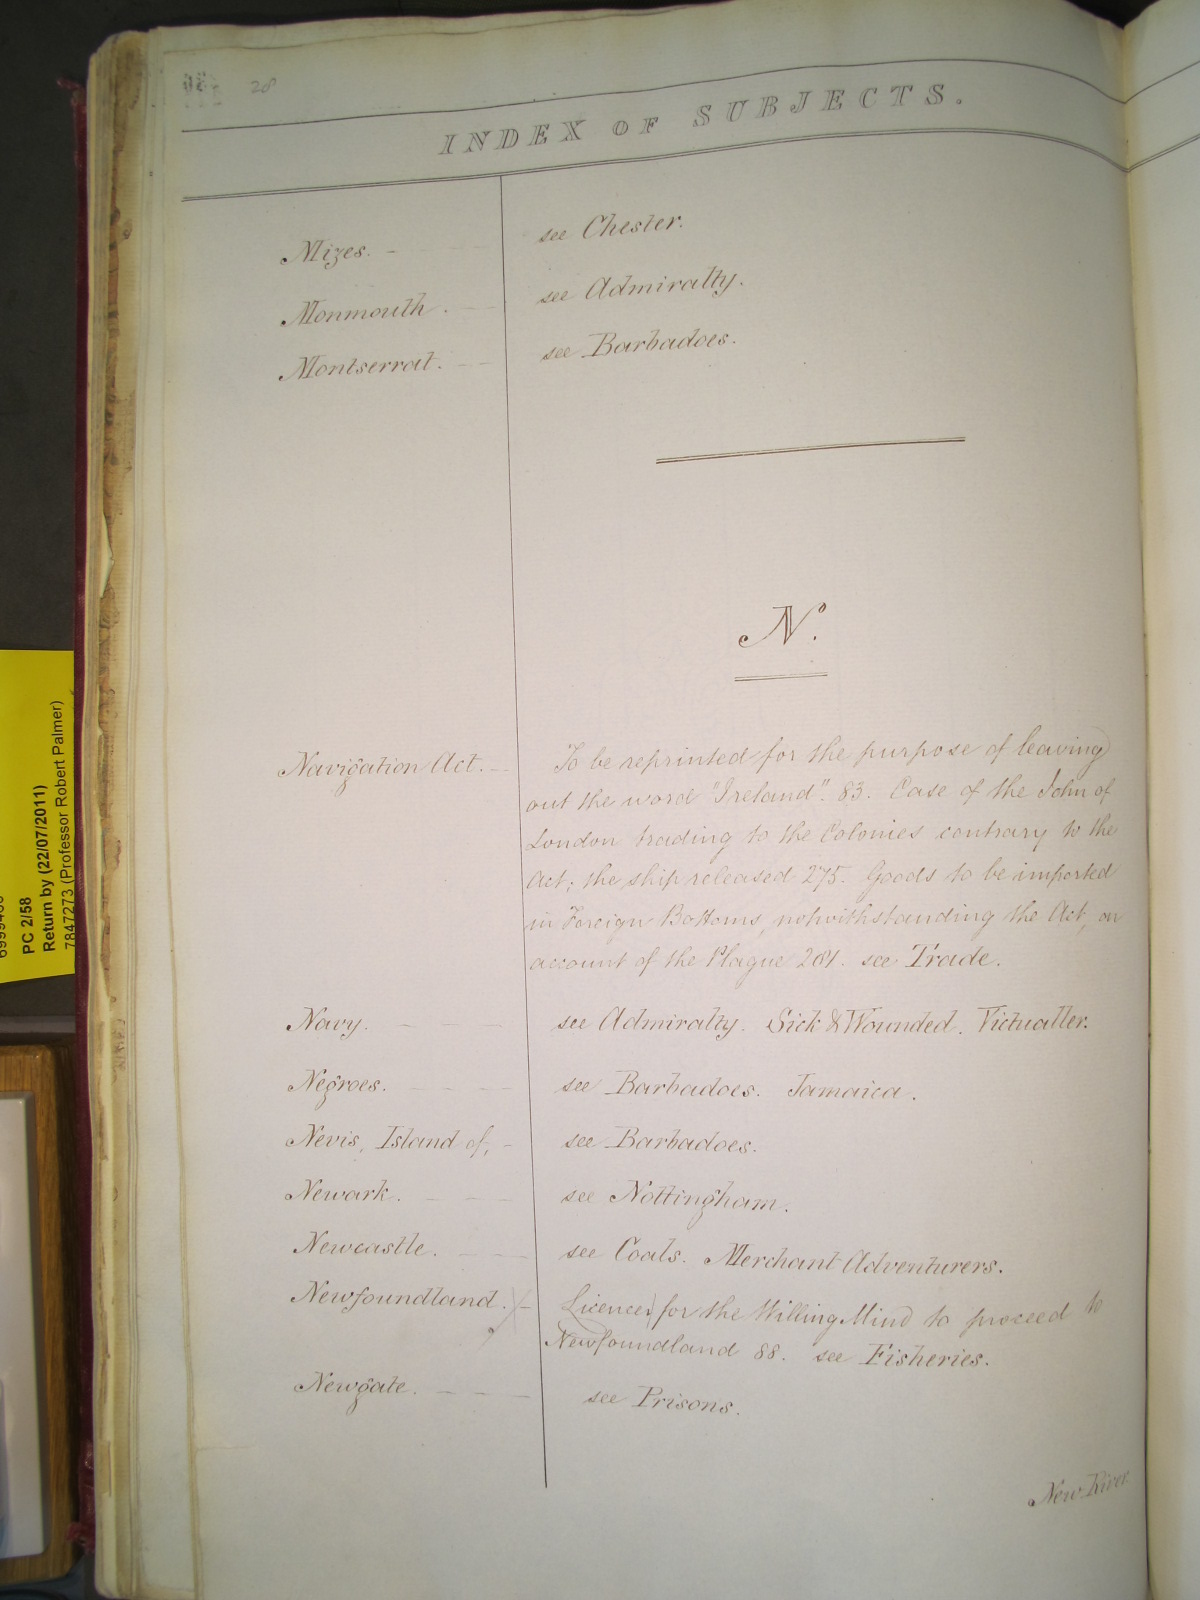 28
INDEX OF SUBJECTS.
Mizes. - see Chester.
Monmouth. - see Admiralty.
Montserrat. - see Barbadoes.
N.
Navigation Act. - To be reprinted for the purpose of leaving
out the word "Ireland". 83. Case of the John of
London trading to the Colonies contrary to the
Act; the ship released 275. Goods to be imported
in Foreign Bottoms, notwithstanding the Act, on
account of the Plague 281. see Trade.
Navy. - - - see Admiralty. Sick & Wounded. Victualler.
Negroes. - - - see Barbadoes. Jamaica.
Nevis, Island of, - see Barbadoes.
Newark. - - - see Nottingham.
Newcastle. - - see Coals. Merchant Adventurers.
Newfoundland. - Licence for the Willing Mind to proceed to
Newfoundland 88. see Fisheries.
Newgate. - - - see Prisons.
New River.
PC 2/58
Return by (22/07/2011)
7847273 (Professor Robert Palmer)